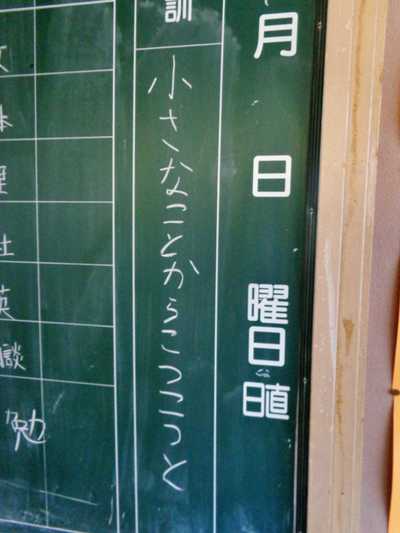 月 日 曜日 日直
訓
小さなことからこつこつと
体
理
社
英
談
勉